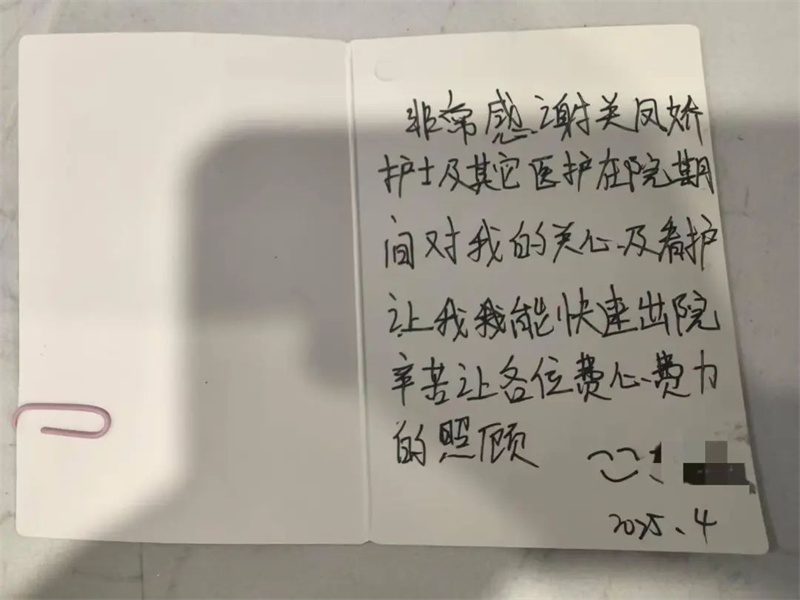 非常感谢关凤娇
护士及其它医护在院期
间对我的关心及看护
让我我能快速出院
辛苦让各位费心费力
的照顾
2025.4